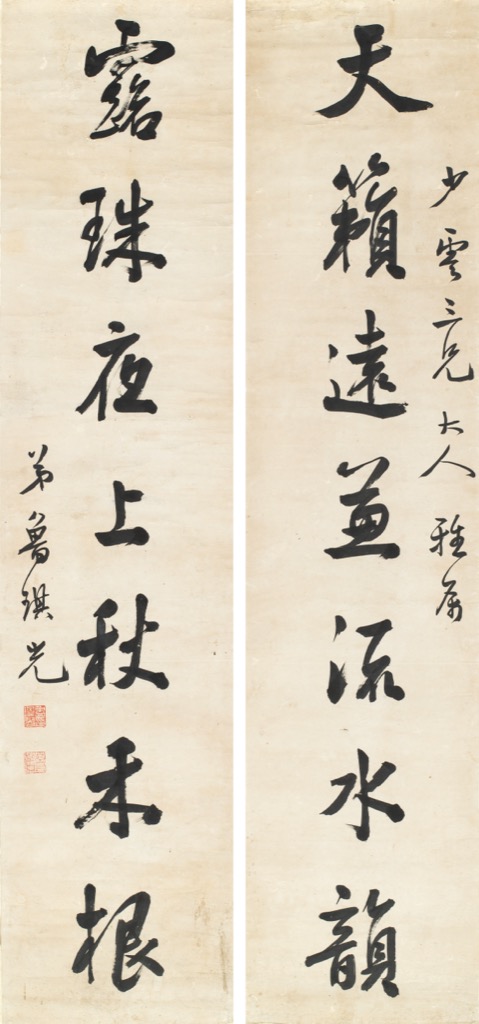 少雲三兄大人雅属
天籟遠兼流水韻
露珠夜上秋禾根
弟魯琪光